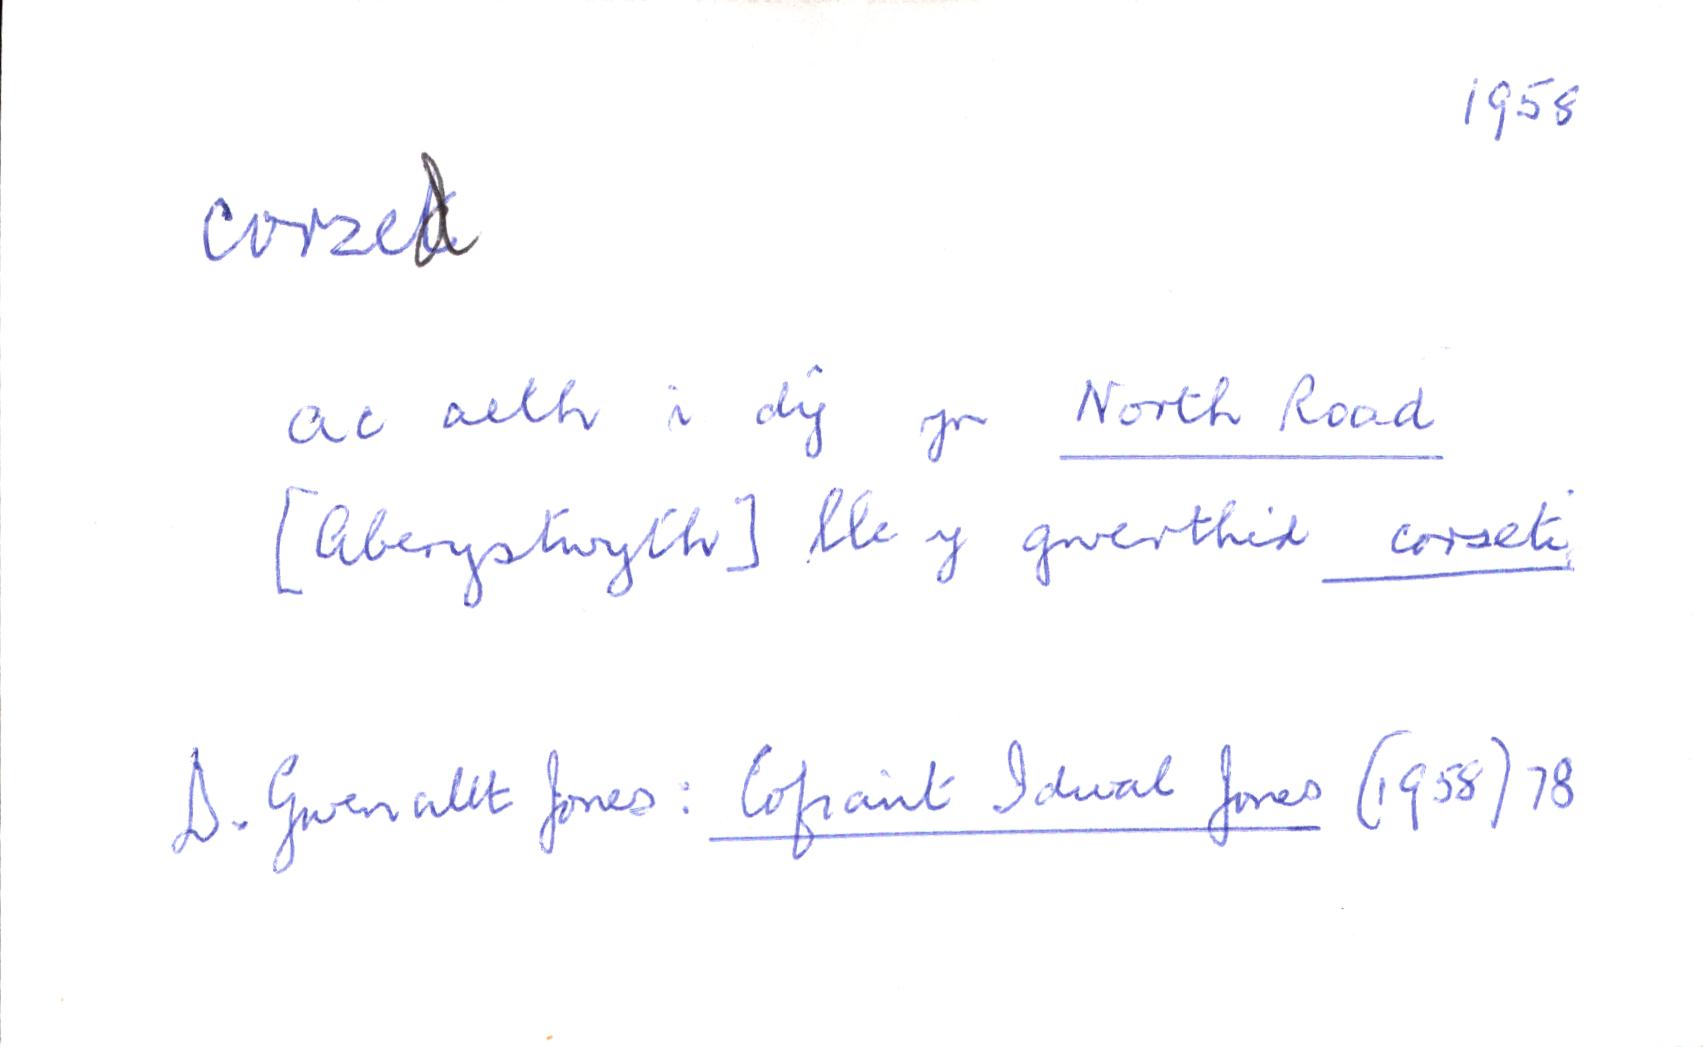 1958
corsed
ac aeth i dŷ yn North Road
[Aberystwyth] lle y gwerthid corseti
D. Gwenallt Jones: Cofiant Idwal Jones (1958) 78